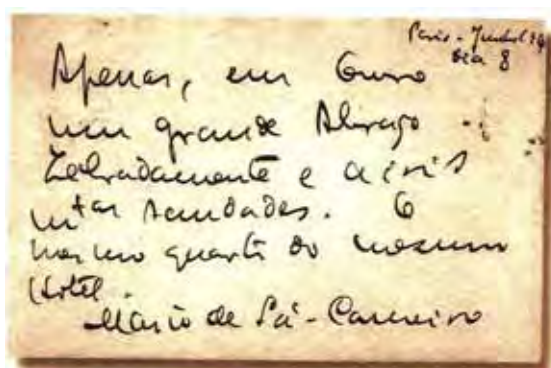 Paris - Junho 14
Dia 8
Apenas, em Ouro
um grande Abraço
Zebradamente e a iris
mtas saudades. O
mesmo quarto do mesmo
Hotel.
Mário de Sá-Carneiro